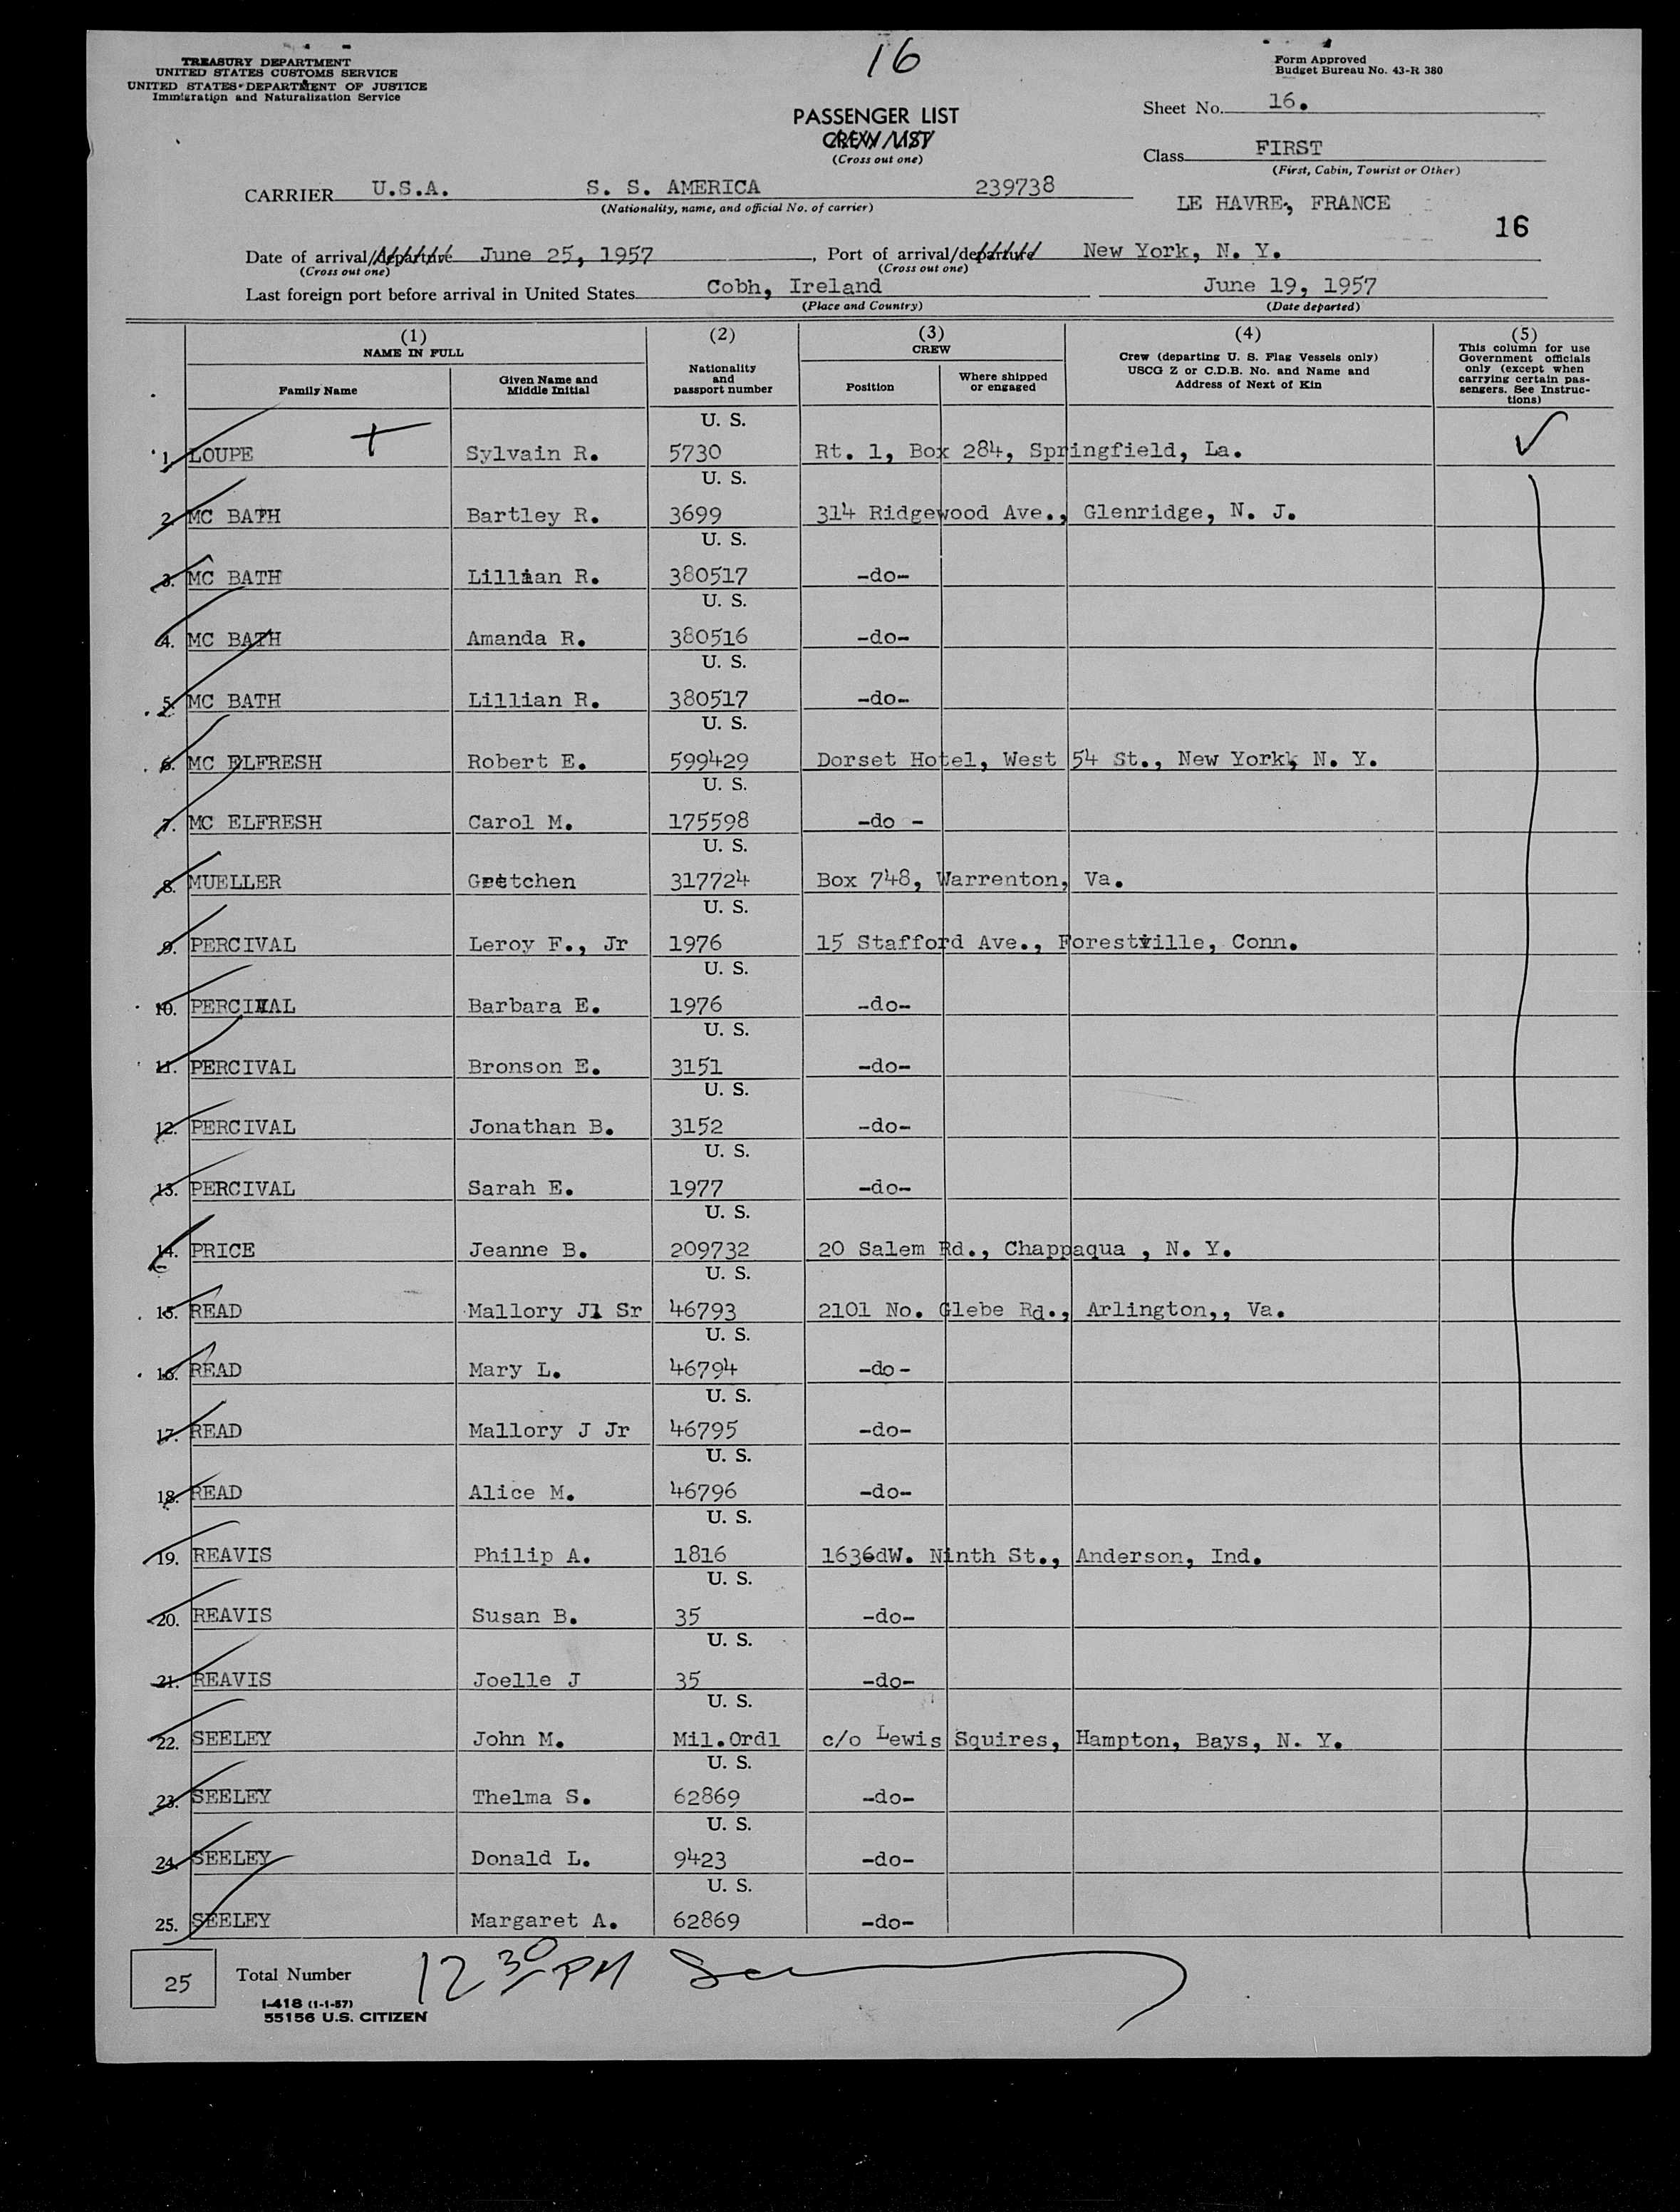 16
TREASURY DEPARTMENT
UNITED STATES CUSTOMS SERVICE
UNITED STATES DEPARTMENT OF JUSTICE
Immigration and Naturalization Service
Form Approved
Budget Bureau No. 43-R 380
PASSENGER LIST
CREW LIST
(Cross out one)
Sheet No. 16.
Class FIRST
(First, Cabin, Tourist or Other)
CARRIER U.S.A. S. S. AMERICA 239738
(Nationality, name, and official No. of carrier)
LE HAVRE, FRANCE
16
Date of arrival/departure June 25, 1957, Port of arrival/departure New York, N. Y.
(Cross out one) (Cross out one)
Last foreign port before arrival in United States Cobh, Ireland June 19, 1957
(Place and Country) (Date departed)
(1) NAME IN FULL
Family Name
Given Name and Middle Initial
(2) Nationality and passport number
(3) CREW
Position
Where shipped or engaged
(4) Crew (departing U. S. Flag Vessels only) USCG Z or C.D.B. No. and Name and Address of Next of Kin
(5) This column for use Government officials only (except when carrying certain passengers. See Instructions)
U. S.
1. LOUPE Sylvain R. 5730 Rt. 1, Box 284, Springfield, La.
U. S.
2. MC BATH Bartley R. 3699 314 Ridgewood Ave., Glenridge, N. J.
U. S.
3. MC BATH Lillian R. 380517 -do-
U. S.
4. MC BATH Amanda R. 380516 -do-
U. S.
5. MC BATH Lillian R. 380517 -do-
U. S.
6. MC ELFRESH Robert E. 599429 Dorset Hotel, West 54 St., New York, N. Y.
U. S.
7. MC ELFRESH Carol M. 175598 -do -
U. S.
8. MUELLER Gretchen 317724 Box 748, Warrenton, Va.
U. S.
9. PERCIVAL Leroy F., Jr 1976 15 Stafford Ave., Forestville, Conn.
U. S.
10. PERCIVAL Barbara E. 1976 -do-
U. S.
11. PERCIVAL Bronson E. 3151 -do-
U. S.
12. PERCIVAL Jonathan B. 3152 -do-
U. S.
13. PERCIVAL Sarah E. 1977 -do-
U. S.
14. PRICE Jeanne B. 209732 20 Salem Rd., Chappaqua , N. Y.
U. S.
15. READ Mallory Jl Sr 46793 2101 No. Glebe Rd., Arlington,, Va.
U. S.
16. READ Mary L. 46794 -do -
U. S.
17. READ Mallory J Jr 46795 -do-
U. S.
18. READ Alice M. 46796 -do-
U. S.
19. REAVIS Philip A. 1816 1636dW. Ninth St., Anderson, Ind.
U. S.
20. REAVIS Susan B. 35 -do-
U. S.
21. REAVIS Joelle J 35 -do-
U. S.
22. SEELEY John M. Mil.Ordl c/o Lewis Squires, Hampton, Bays, N. Y.
U. S.
23. SEELEY Thelma S. 62869 -do-
U. S.
24. SEELEY Donald L. 9423 -do-
U. S.
25. SEELEY Margaret A. 62869 -do-
25 Total Number
12 30 PM
I-418 (1-1-57)
55156 U.S. CITIZEN